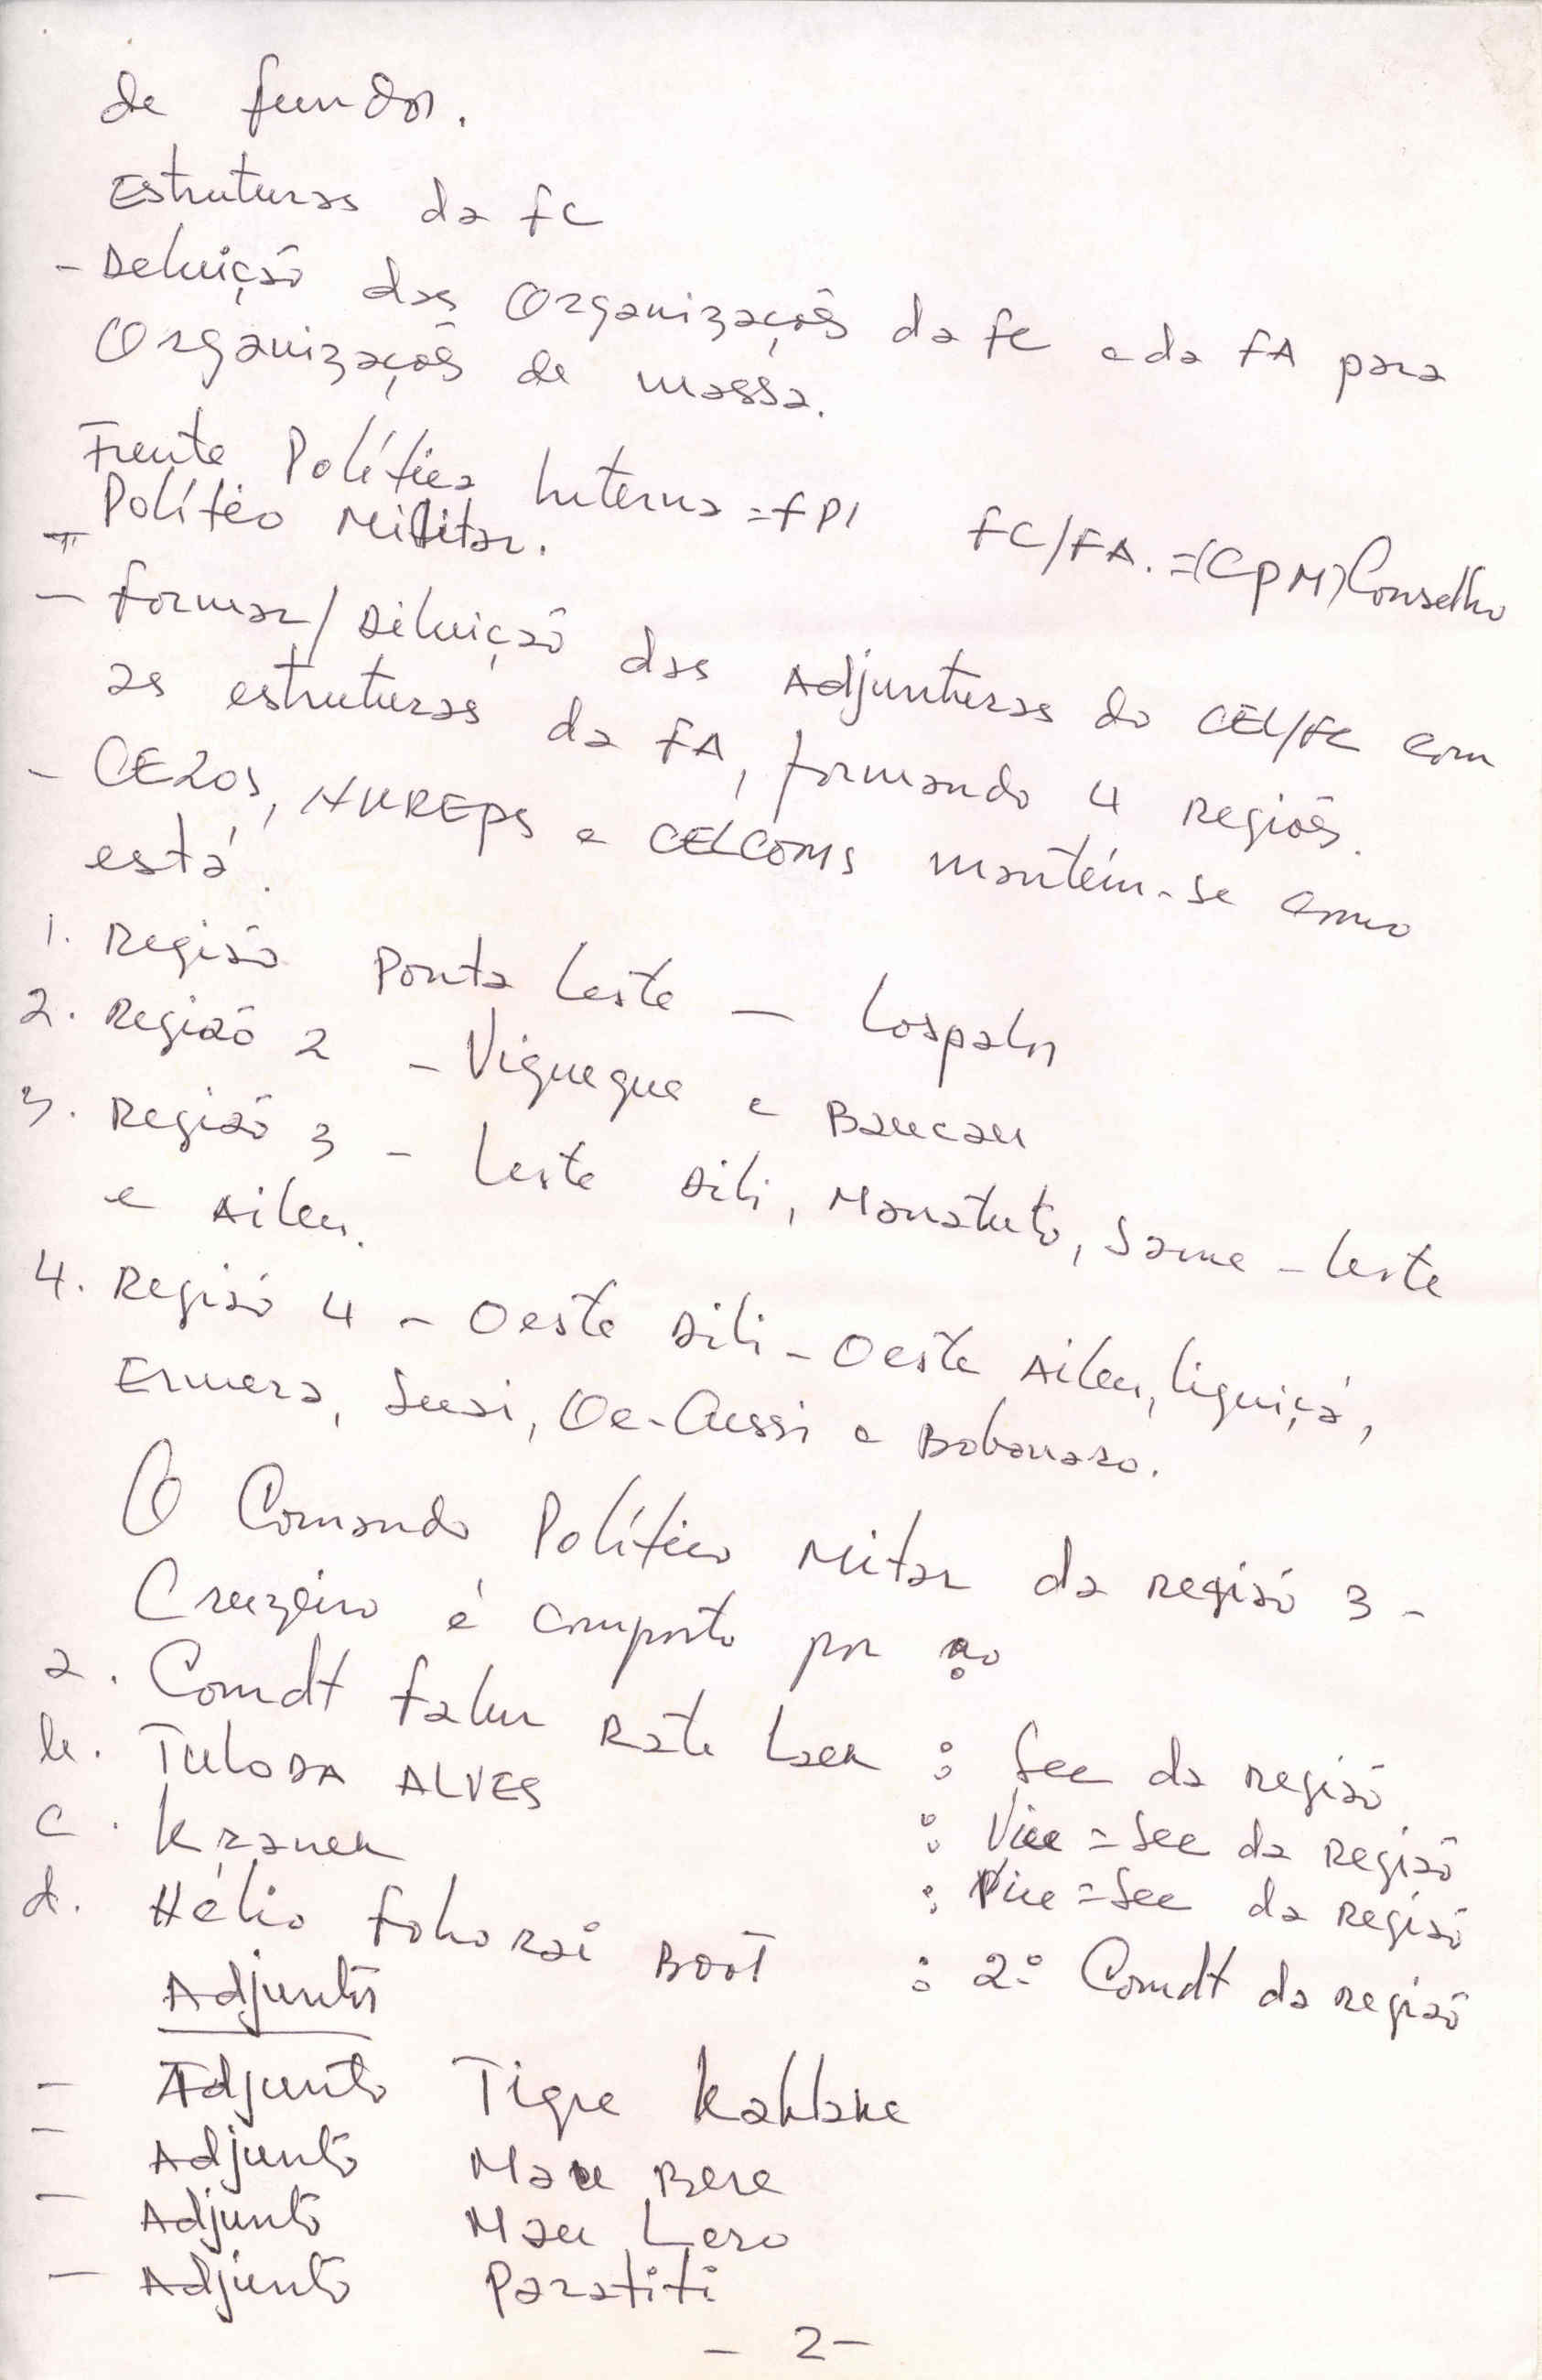 de fundos.
Estruturas da FC
- Deluição das Organizações da FC e da FA para
Organizações de massa.
Frente Política Interna = FPI FC/FA. = (CPM) Conselho
Político Militar.
- Formar/Diluição das Adjunturas do CEL/FC com
as estruturas da FA, formando 4 regiões.
- CEZOS, NUREPS e CELCOMS mantém-se como
está.
1. Região Ponta Leste - Lospalos
2. Região 2 - Viqueque e Baucau
3. Região 3 - Leste Dili, Manatuto, Same - Leste
e Aileu.
4. Região 4 - Oeste Dili - Oeste Aileu, Liquiçá,
Ermera, Suai, Oe-Cussi e Bobonaro.
O Comando Político Mitar da região 3 -
Cruzeiro é composto por
a. Comdt Falur Rate Laek : Sec da região
b. TULODA ALVES : Vice = Sec da região
c. Kranek : Vice = Sec da região
d. Hélio Fohorai Boot : 2º Comdt da região
Adjuntos
- Adjunto Tigre Kahlake
- Adjunto Mau Bere
- Adjunto Mau Lero
- Adjunto Paratiti
- 2 -